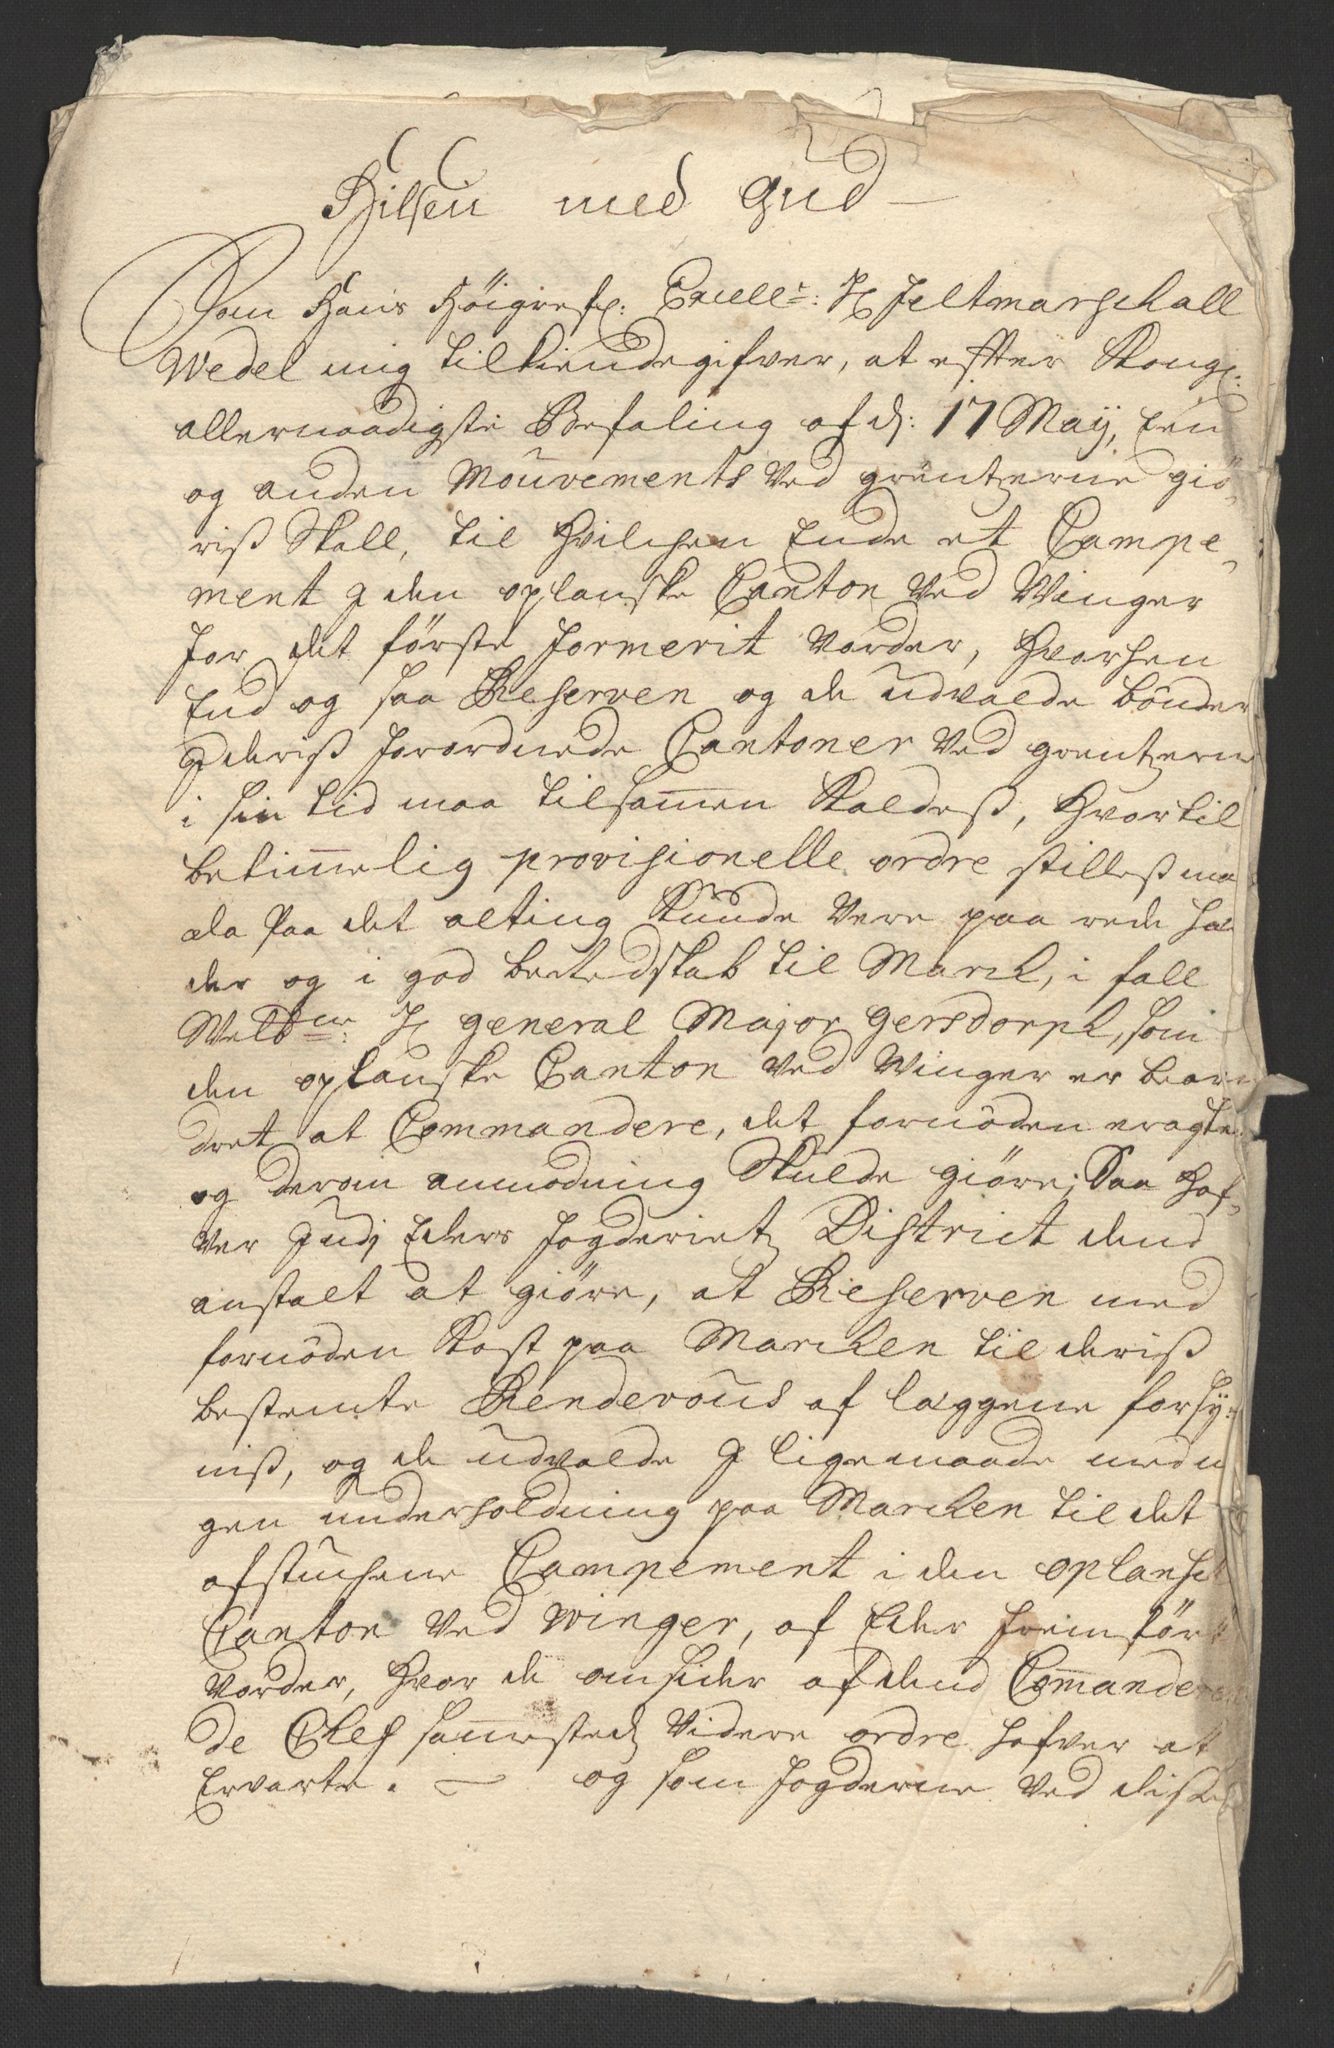 Hilsen med Gud
Som Hans Høigrefl: Excell:r Hr Feltmarschall
Wedel mig tilkiendegifver, at efter Kongl:
allernaadigste Befaling af d: 17 Maij, een
og anden Mouvements ved grentzerne giø,,
riß skall, til hvilchen Ende et Campe,,
ment i den oplanske Canton ved Winger
for det første formerit vorder, hvorhen
End og saa Reserven og de udvalde bønder
i deriß forordnede Cantoner ved grentzerne
i sin tid maa tilsam̄en kaldeß, hvortil
betim̄elig provisionelle ordre stilleß maa
da paa det alting kunde være paa rede hæ
der og i god beredskab til March, i fall
Welb:ne Hr General Major Gersdorph, som
den oplanske Canton ved Winger er beor
dret at Commandere, det fornøden eragte
og derom anmodning skulde giøre; Saa haf,,
ver I udj Eders fogderietz District dend
anstalt at giøre, at Reserven med
fornøden kost paa Marchen til deriß
bestemte Rendevous af læggene forsy,,
niß, og de udvalde i ligemaade med e
gen underholdning paa Marchen til det
afstuchene Campement i den oplansche
Canton ved Winger, af Eder fremført
vorder, hvor de omsider af dend Com̄andere
de Chef sam̄estedz videre ordre hafver at
Ervarte. — og som fogderne ved diße